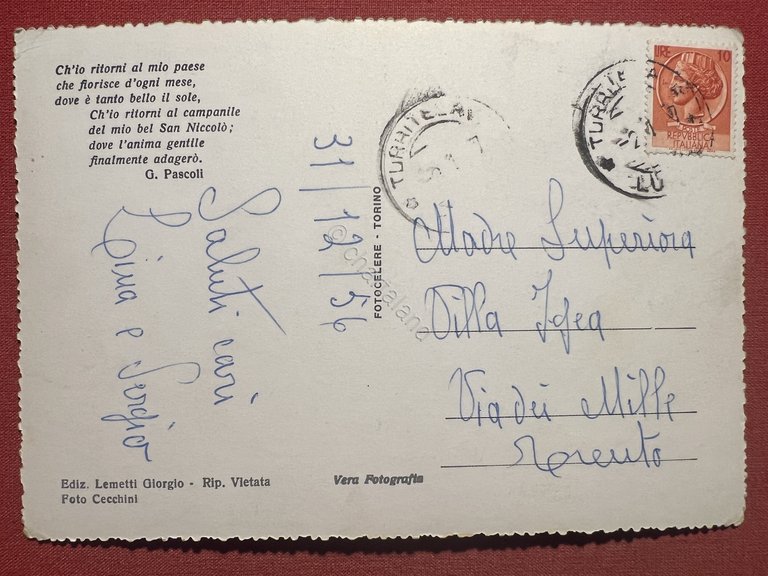 Ch'io ritorni al mio paese
che fiorisce d'ogni mese,
dove è tanto bello il sole,
Ch'io ritorni al campanile
del mio bel San Niccolò;
dove l'anima gentile
finalmente adagerò.
G. Pascoli
31/12/56
Saluti cari
Lina e Sergio
Ediz. Lemetti Giorgio - Rip. Vietata
Foto Cecchini
Vera Fotografia
FOTOCELERE - TORINO
© chezaland
TURRITE
TURRITE
LU
LIRE 10
POSTE
REPVBBLICA
ITALIANA
Madre Superiora
Villa Igea
Via dei Mille
Trento